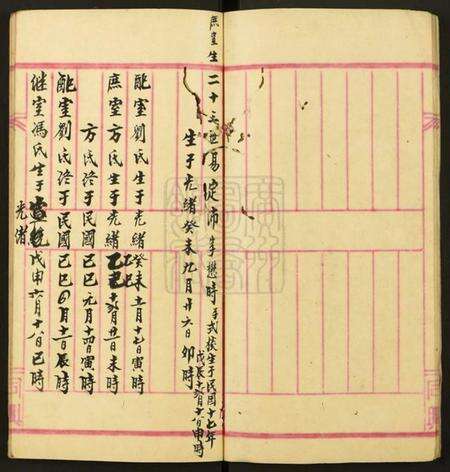 庶室生
二十三世錫淀沛字懋時子式棪生于民國十七年
戊辰十二月十一日申時
生于光緒癸未九月廿六日卯時
配室劉氏生于光緒癸未五月十七日寅時
庶室方氏生于光緒乙巳十二月廿一日未時
乙巳
方氏終于民國己巳元月十四日寅時
配室劉氏終于民國己巳四月十一日辰時
继室馮氏生于戊申六月十八日巳時
光緒
同興